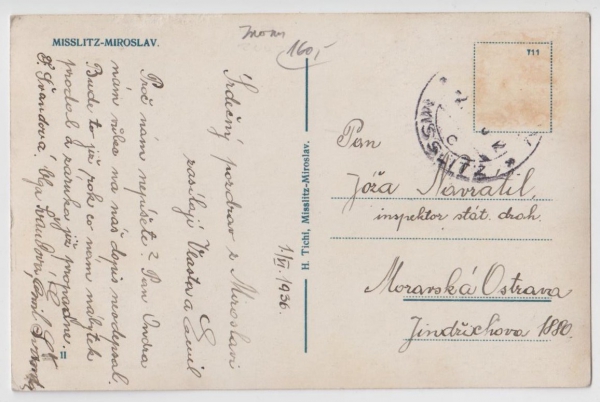 MISSLITZ-MIROSLAV.
160,-
Srdečný pozdrav z Miroslavi
zasílají Vlasta a Emil
1/VI. 1936.
Proč nám nepíšete? Pan Ondra
nám vůbec na náš dopis neodepsal.
Bude to již rok co nám nábytek
prodal a záruka již propadne.
F. Švandová. Olga Švandová, Emil
II
H. Tichi, Misslitz-Miroslav.
T11
MISSLITZ
Pan
Jóža Navrátil,
inspektor stát. drah.
Moravská Ostrava
Jindřichova 1880.